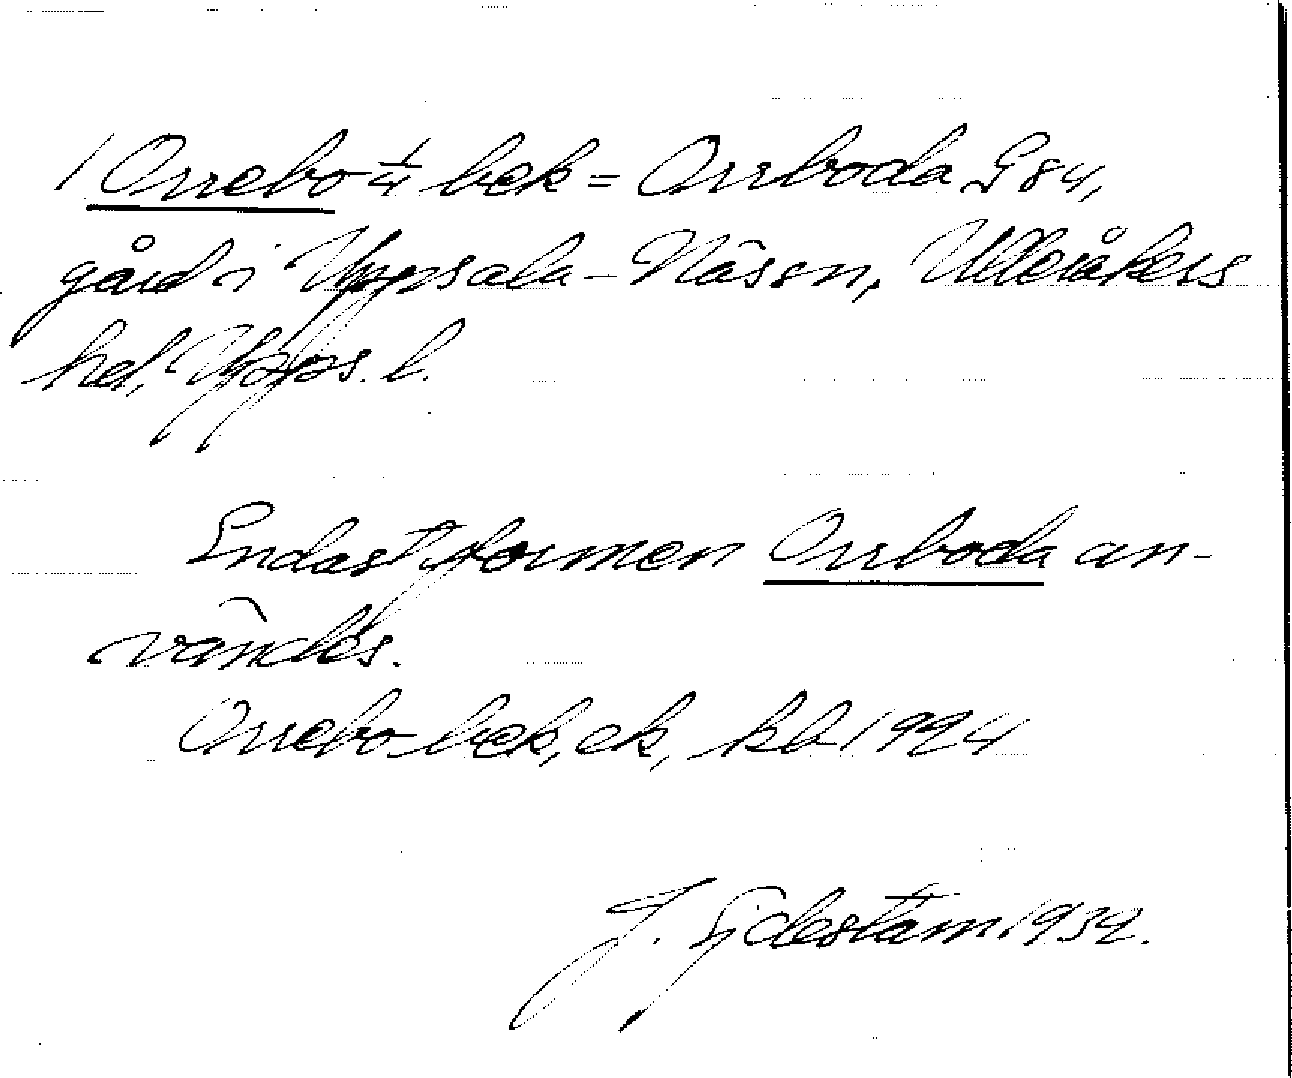 1 Orrebo 1/4 bek = Orrboda G84,
gård i Uppsala-Näsen, Ulleråkers
hd, Upps. l.
Endast formen Orrboda an-
vändes.
Orrebo bek, ek, kb 1924
J. Sjdestam 1932.